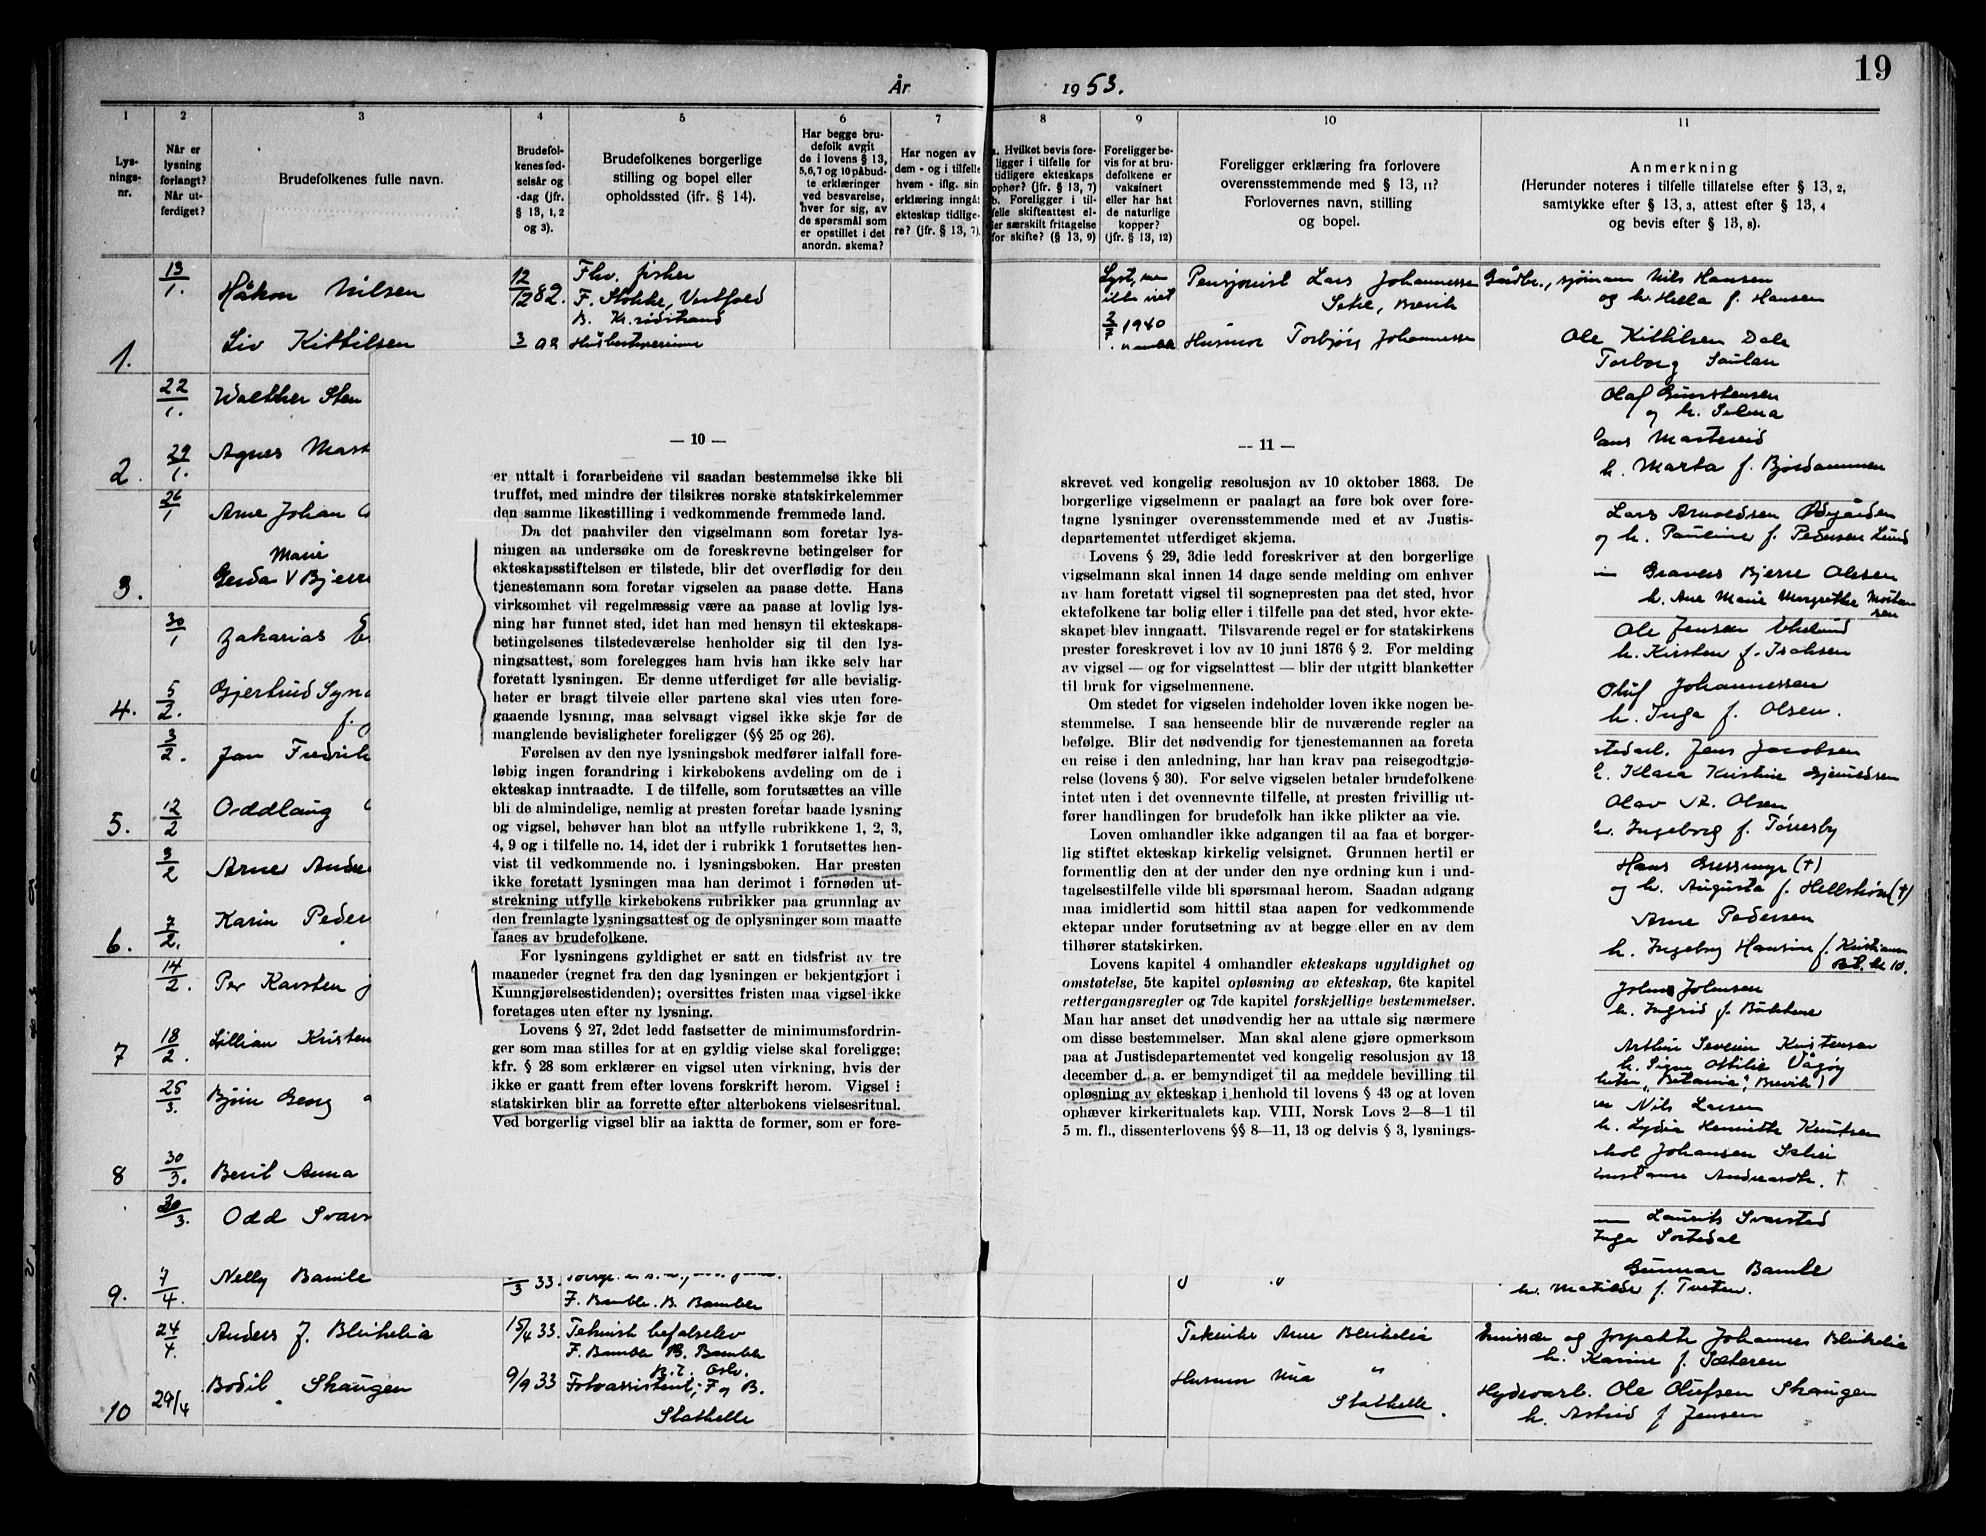 År 1953.
19
1 2 3 4 5 6 7 8 9 10 11
Lys-
nings-
nr.
Når er
lysning
forlangt?
Når ut-
ferdiget?
Brudefolkenes fulle navn.
Brudefol-
kenes fød-
selsår og
-dag (jfr.
§ 13, 1, 2
og 3).
Brudefolkenes borgerlige
stilling og bopel eller
opholdssted (ifr. § 14).
Har begge bru-
defolk avgit
de i lovens § 13,
5,6,7 og 10 påbud-
te erklæringer
ved besvarelse,
hver for sig, av
de spørsmål som
er opstillet i det
anordn. skema?
Har nogen av
dem - og i tilfelle
hvem - iflg. sin
erklæring inngått
ekteskap tidlige-
re? (jfr. § 13, 7).
a. Hvilket bevis fore-
ligger i tilfelle for
tidligere ekteskaps
ophør? (jfr. § 13, 7)
b. Foreligger i til-
felle skifteattest el-
ler særskilt fritagelse
for skifte? (§ 13, 9)
Foreligger be-
vis for at bru-
defolkene er
vaksinert
eller har hat
de naturlige
kopper?
(jfr. § 13, 12)
Foreligger erklæring fra forlovere
overensstemmende med § 13, 11?
Forlovernes navn, stilling
og bopel.
Anmerkning
(Herunder noteres i tilfelle tillatelse efter § 13, 2,
samtykke efter § 13, 3, attest efter § 13, 4
og bevis efter § 13, 8).
13/1. Håkon Nilsen 12/12 82. Fhv. fisker
F. Stokke, Vestfold
Pensjonist Lars Johannessen
Brevik
sjømann Nils Hansen
og h. Hella f. Hansen
1. Liv Kittilsen
3/7 1940
Husmor Torbjørg Johannessen
Ole Kittilsen Dale
Torborg Saulan
22/1. Walther Sten
Olaf Gunstensen
og h. Selma
2. 29/1. Agnes Mast
h. Marta f. Bjordammen
26/1 Arne Johan
Lars Arnoldsen Ødegården
og h. Pauline f. Pedersen Lund
3. Gerda Marie V Bjerre
Bjerre Olesen
h. Ane Marie Margrethe Morten
sen
30/1 Zakarias E
Ole Jensen Ekelund
h. Kirsten f. Isaksen
4. 5/2. Gjertrud Syn
f.
Oluf Johannessen
h. Inga f. Olsen.
3/2. Jan Fredrik
Jens Jacobsen
h. Klara Kristine Gjermundsen
5. 12/2 Oddlaug
Olav A. Olsen
h. Ingeborg f. Tørresby
3/2 Arne Andre
Hans Gressmyr (†)
og h. Augusta f. Hellskås (†)
6. 7/2. Karin Peder
Arne Pedersen
h. Ingeborg Hansine f. Kristiansen
Bil. nr 10.
14/2. Per Karsten
Johnsen
h. Ingrid f. Bakkene
7 18/2. Lillian Kristen
Arthur Severin Kristensen
h. Signe Ottilie Vågøy
"Betania", Brevik)
25/3. Bjørn Georg
Nils Larsen
h. Lydia Henriette Knutsen
8 30/3. Berit Anna
Johansen
Andrea †
30/3. Odd Svars
Laurits Svarstad
Inga Sortedal
9. 7/4. Nelly Bamle
3 33.
F. Bamble. B. Bamble
Gunnar Bamle
h. Matilde f. Tveten.
24/4. Anders J. Bleikelia 15/4 33. Teknist befalselev
F. Bamble B. Bamble
B. t. Oslo.
Tekniker Arne Bleikelia
Emissær og forpakter Johannes Bleikelia
h. Karine f. Sæteren
10 29/4 Bodil Skaugen 9/9 33 Fotoassistent; F og B.
Stathelle
Husmor Mia "
Stathelle.
Hydroarb. Ole Olufsen Skaugen
h. Astrid f. Jensen
— 10 —
er uttalt i forarbeidene vil saadan bestemmelse ikke bli
truffet, med mindre der tilsikres norske statskirkelemmer
den samme likestilling i vedkommende fremmede land.
Da det paahviler den vigselmann som foretar lys-
ningen aa undersøke om de foreskrevne betingelser for
ekteskapsstiftelsen er tilstede, blir det overflødig for den
tjenestemann som foretar vigselen aa paase dette. Hans
virksomhet vil regelmæssig være aa paase at lovlig lys-
ning har funnet sted, idet han med hensyn til ekteskaps-
betingelsenes tilstedeværelse henholder sig til den lys-
ningsattest, som forelegges ham hvis han ikke selv har
foretatt lysningen. Er denne utferdiget før alle bevislig-
heter er bragt tilveie eller partene skal vies uten fore-
gaaende lysning, maa selvsagt vigsel ikke skje før de
manglende bevisligheter foreligger (§§ 25 og 26).
Førelsen av den nye lysningsbok medfører ialfall fore-
løbig ingen forandring i kirkebokens avdeling om de i
ekteskap inntraadte. I de tilfelle, som forutsættes aa ville
bli de almindelige, nemlig at presten foretar baade lysning
og vigsel, behøver han blot aa utfylle rubrikkene 1, 2, 3,
4, 9 og i tilfelle no. 14, idet der i rubrikk 1 forutsettes hen-
vist til vedkommende no. i lysningsboken. Har presten
ikke foretatt lysningen maa han derimot i fornøden ut-
strekning utfylle kirkebokens rubrikker paa grunnlag av
den fremlagte lysningsattest og de oplysninger som maatte
faaes av brudefolkene.
For lysningens gyldighet er satt en tidsfrist av tre
maaneder (regnet fra den dag lysningen er bekjentgjort i
Kunngjørelsestidenden); oversittes fristen maa vigsel ikke
foretages uten efter ny lysning.
Lovens § 27, 2det ledd fastsetter de minimumsfordrin-
ger som maa stilles for at en gyldig vielse skal foreligge;
kfr. § 28 som erklærer en vigsel uten virkning, hvis der
ikke er gaatt frem efter lovens forskrift herom. Vigsel i
statskirken blir aa forrette efter alterbokens vielsesritual.
Ved borgerlig vigsel blir aa iaktta de former, som er fore-
— 11 —
skrevet ved kongelig resolusjon av 10 oktober 1863. De
borgerlige vigselmenn er paalagt aa føre bok over fore-
tagne lysninger overensstemmende med et av Justis-
departementet utferdiget skjema.
Lovens § 29, 3die ledd foreskriver at den borgerlige
vigselmann skal innen 14 dage sende melding om enhver
av ham foretatt vigsel til sognepresten paa det sted, hvor
ektefolkene tar bolig eller i tilfelle paa det sted, hvor ekte-
skapet blev inngaatt. Tilsvarende regel er for statskirkens
prester foreskrevet i lov av 10 juni 1876 § 2. For melding
av vigsel — og for vigselattest — blir der utgitt blanketter
til bruk for vigselmennene.
Om stedet for vigselen indeholder loven ikke nogen be-
stemmelse. I saa henseende blir de nuværende regler aa
befølge. Blir det nødvendig for tjenestemannen aa foreta
en reise i den anledning, har han krav paa reisegodtgjø-
relse (lovens § 30). For selve vigselen betaler brudefolkene
intet uten i det ovennevnte tilfelle, at presten frivillig ut-
fører handlingen for brudefolk han ikke plikter aa vie.
Loven omhandler ikke adgangen til aa faa et borger-
lig stiftet ekteskap kirkelig velsignet. Grunnen hertil er
formentlig den at der under den nye ordning kun i und-
tagelsestilfelle vilde bli spørsmaal herom. Saadan adgang
maa imidlertid som hittil staa aapen for vedkommende
ektepar under forutsetning av at begge eller en av dem
tilhører statskirken.
Lovens kapitel 4 omhandler ekteskaps ugyldighet og
omstøtelse, 5te kapitel opløsning av ekteskap, 6te kapitel
rettergangsregler og 7de kapitel forskjellige bestemmelser.
Man har anset det unødvendig her aa uttale sig nærmere
om disse bestemmelser. Man skal alene gjøre opmerksom
paa at Justisdepartementet ved kongelig resolusjon av 13
december d. a. er bemyndiget til aa meddele bevilling til
opløsning av ekteskap i henhold til lovens § 43 og at loven
ophæver kirkeritualets kap. VIII, Norsk Lovs 2—8—1 til
5 m. fl., dissenterlovens §§ 8—11, 13 og delvis § 3, lysnings-